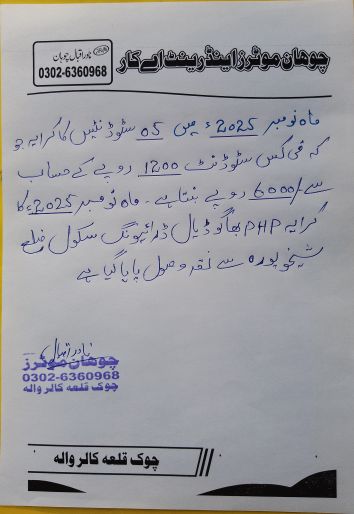 چوھان موٹرز اینڈ رینٹ اے کار
چوہان
0302-6360968
ماہ نومبر 2025ء میں 05 سٹوڈنٹس کا کرایہ جو
کہ فی کس سٹوڈنٹ 1200 روپے کے حساب
سے 6000/- روپے بنتا ہے۔ ماہ نومبر 2025ء کا
کرایہ PHP ڈرائیونگ سکول ضلع
شیخوپورہ سے نقد وصول پایا گیا ہے
چوھان موٹرز
0302-6360968
چوک قلعہ کالر والہ
چوک قلعہ کالر والہ